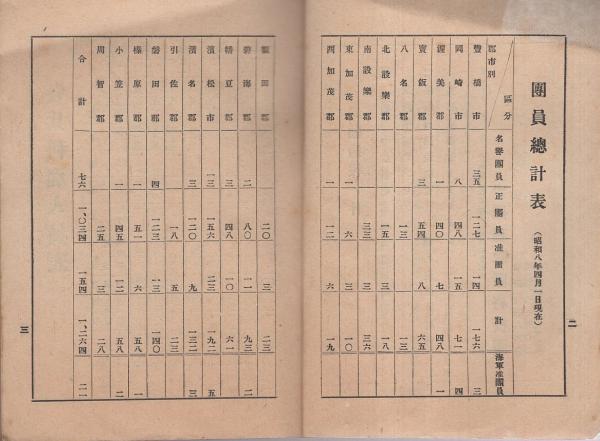 團員總計表（昭和八年四月一日現在）
區分
郡市別 名譽團員 正團員 准團員 計 海軍准團員
豐橋市 三五 一二七 一四 一七六 三
岡崎市 八 四八 一五 七一 四
渥美郡 一 四〇 七 四八 一
寶飯郡 三 五四 八 六五
八名郡 一三 一三
北設樂郡 一五 三 一八
南設樂郡 三三 三 三六
東加茂郡 一 六 三 一〇
西加茂郡 一 一二 六 一九
二
額田郡 二〇 三 二三
碧海郡 二 八〇 一一 九三 二
幡豆郡 三 四八 一〇 六一
濱松市 一三 一五六 二三 一九二 五
濱名郡 三 一二〇 九 一三二 三
引佐郡 一八 五 二三
磐田郡 四 一二三 一三 一四〇
榛原郡 一 五一 六 五八 一
小笠郡 一 四五 一二 五八 二
周智郡 二五 三 二八
合計 七六 一、〇三四 一五四 一、二六四 二一
三